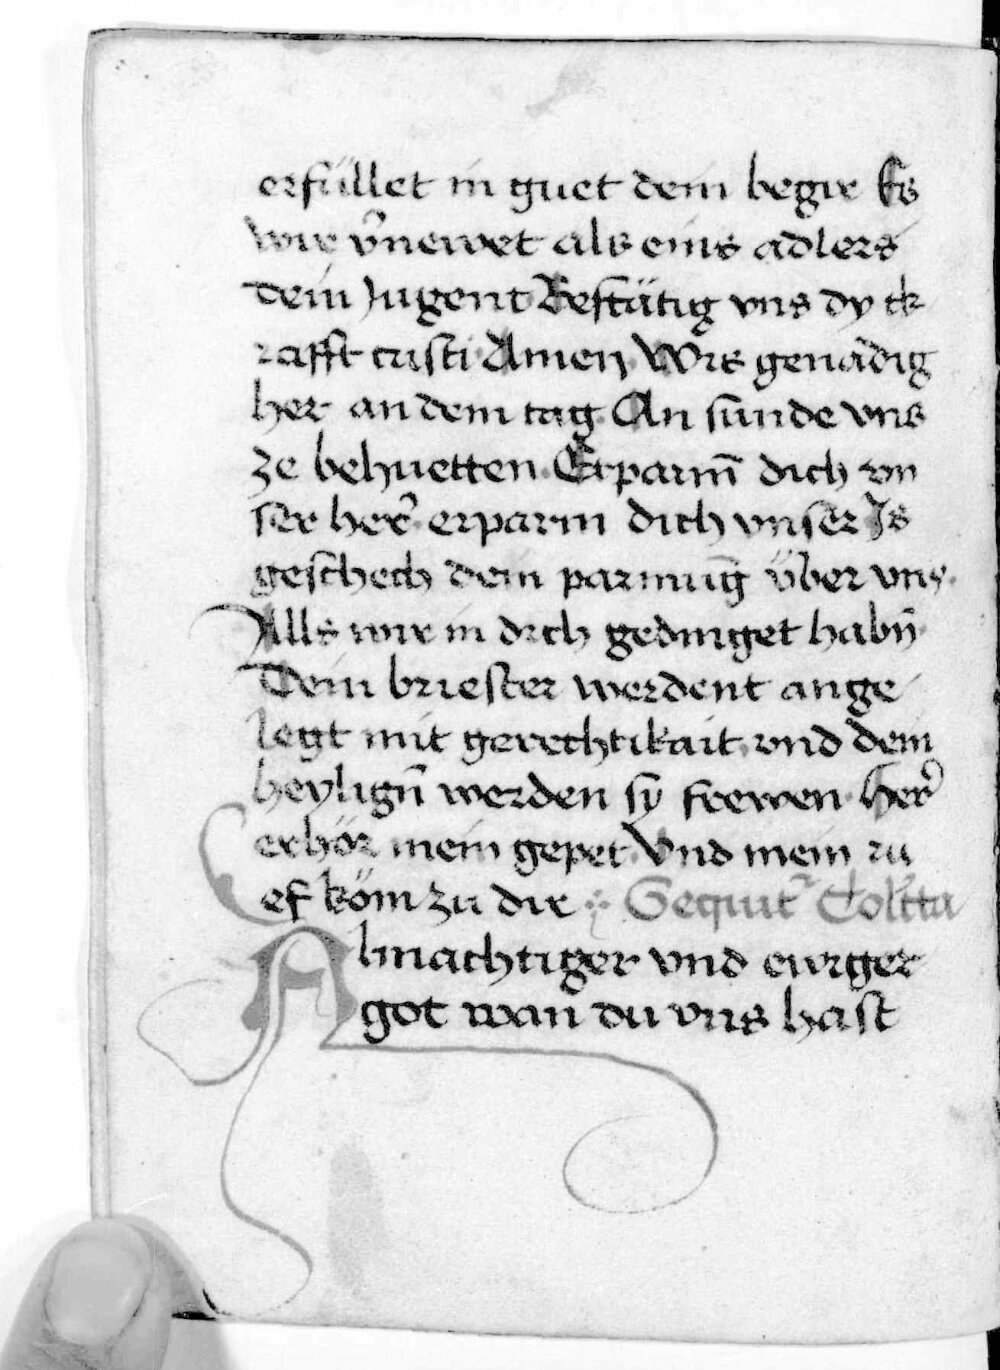 erfüllet in guet dein begir Es
wir v̄newet als einis adlers
dein Jugent Bestätig vns dy ck
rafft cristi Amen Wis genädig
her an dem tag An sunde vns
ze behuetten Erparm̄ dich vn
ser her̄ erparm dich vnser Is
geschech dein parmūg über vns
Alls wir in dich gedinget habn̄
Dein briester werdent ange
legt mit gerechtikait vnd dein
heylign̄ werden sy frewen her̄
erhör mein gepet Vnd mein ru
ef köm zu dir Sequit᷑ Coll̄ta
Almachtiger vnd ewiger
got wan du vns hast